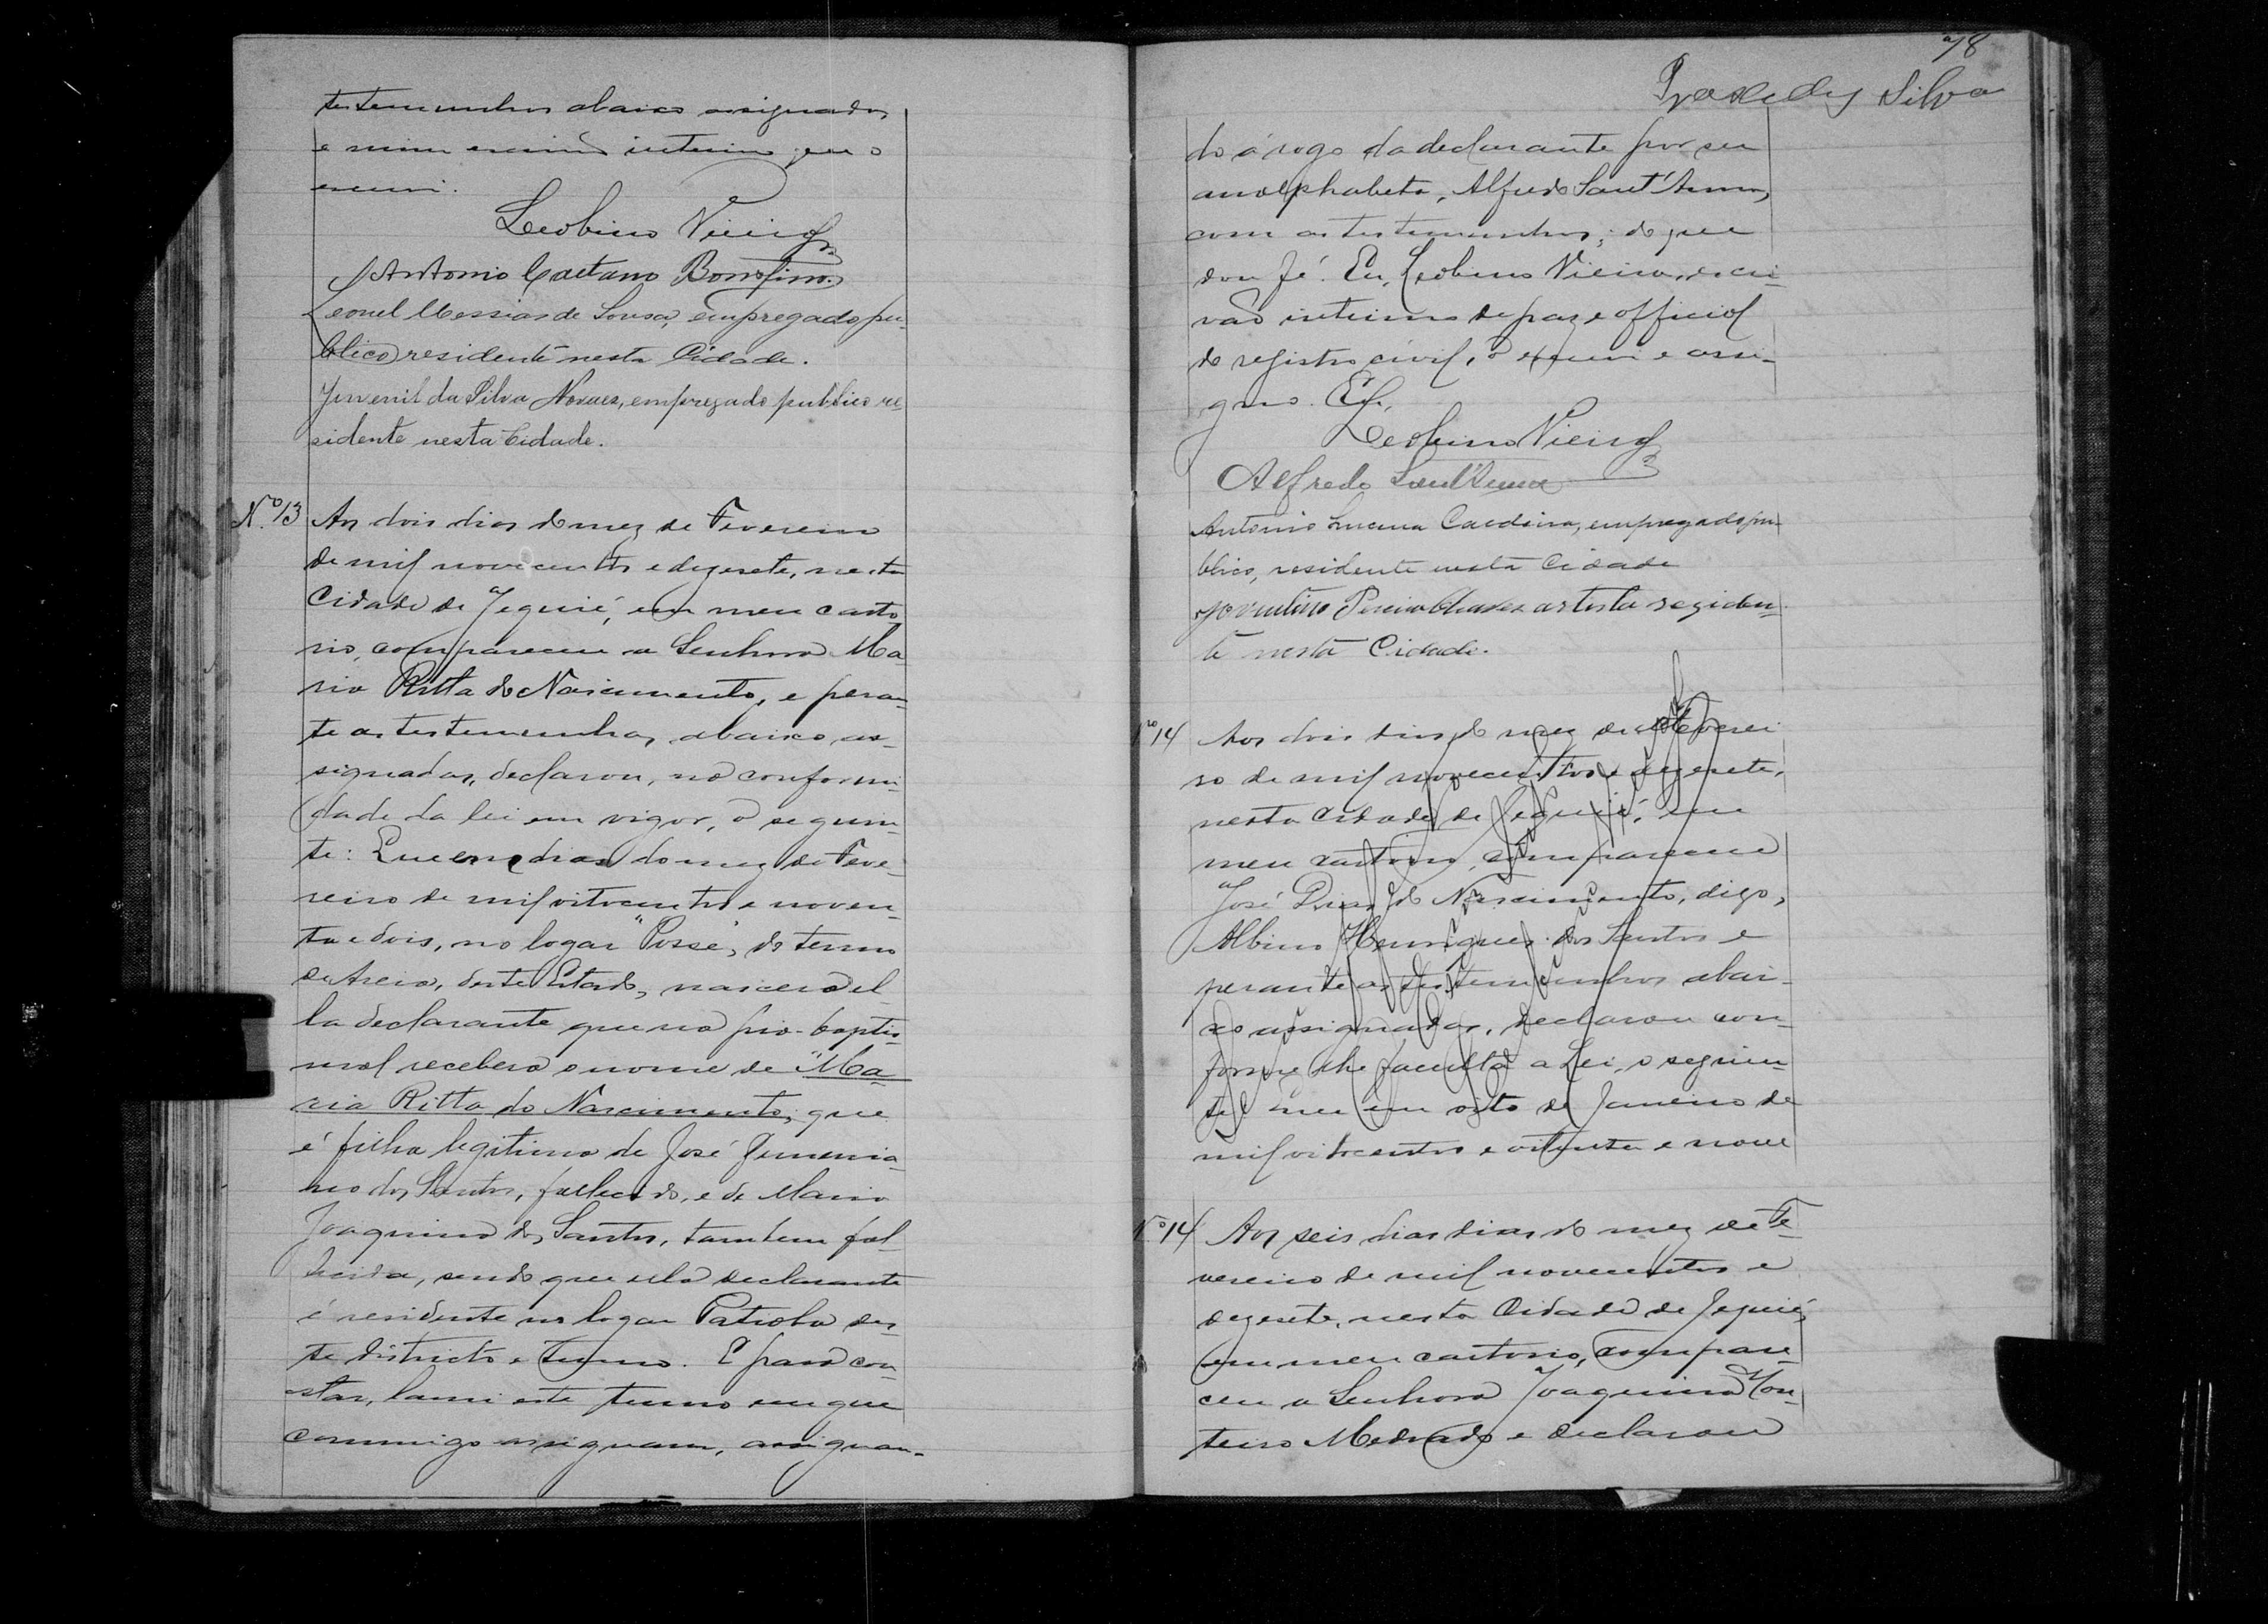 testemunhas abaixo assignados
e mim escrivão interino que o
escrevi.
Leobino Vieira
Antonio Caetano Bomfim.
Leonel Messias de Sousa, empregado pu-
blico residente nesta Cidade.
Juvenil da Silva Novaes, empregado publico re-
sidente nesta Cidade.
N.º 13
Aos dois dias do mez de Fevereiro
de mil novecentos e dezesete, nesta
Cidade de Jequié, em meu carto
rio, compareceu a Senhora Ma
ria Ritta do Nascimento, e peran-
te as testemunhas abaixo as-
signadas, declarou, na conformi-
dade da lei em vigor, o seguin-
te: Que em dias do mez de Feve-
reiro de mil oitocentos e noven-
ta e dois, no logar "Posse", do termo
de Areia, deste Estado, nascera el-
la declarante que na pia-baptis-
mal recebera o nome de "Ma-
ria Ritta do Nascimento, que
é filha legitima de José
dos Santos, fallecido, e de Maria
Joaquina dos Santos, tambem fal-
lecida, sendo que ella declarante
é residente no logar des-
te districto e termo. E para con-
star, lavrei este termo em que
commigo assignam, assignan-
78
Praxedes Silva
do á rogo da declarante por ser
analphabeta, Alfredo Sant'Anna,
com as testemunhas; do que
dou fé. Eu, Leobino Vieira, escri-
vão interino de paz e official
do registro civil, o escrevi e assi-
gno.
Leobino Vieira
Alfredo Sant'Anna
Antonio Lucena Cardoso, empregado pu-
blico, residente nesta Cidade
Jovintino Pereira Chaves artista residen-
te nesta Cidade.
Nº 14
Aos dois dias do mez de Feverei
ro de mil novecentos e dezesete,
nesta Cidade de Jequié, em
meu cartorio, compareceu
José Dias do Nascimento, digo,
Albino Henriques dos Santos e
perante as testemunhas abai-
xo assignadas, declarou con-
forme lhe faculta a Lei, o seguin-
te: que em oito de Janeiro de
mil oitocentos e oitenta e nove
N.º 14
Aos seis dias dias do mez de Fe-
vereiro de mil novecentos e
dezesete, nesta Cidade de Jequié,
em meu cartorio, compare-
ceu a Senhora Joaquina Mon-
teiro Medrado e declarou